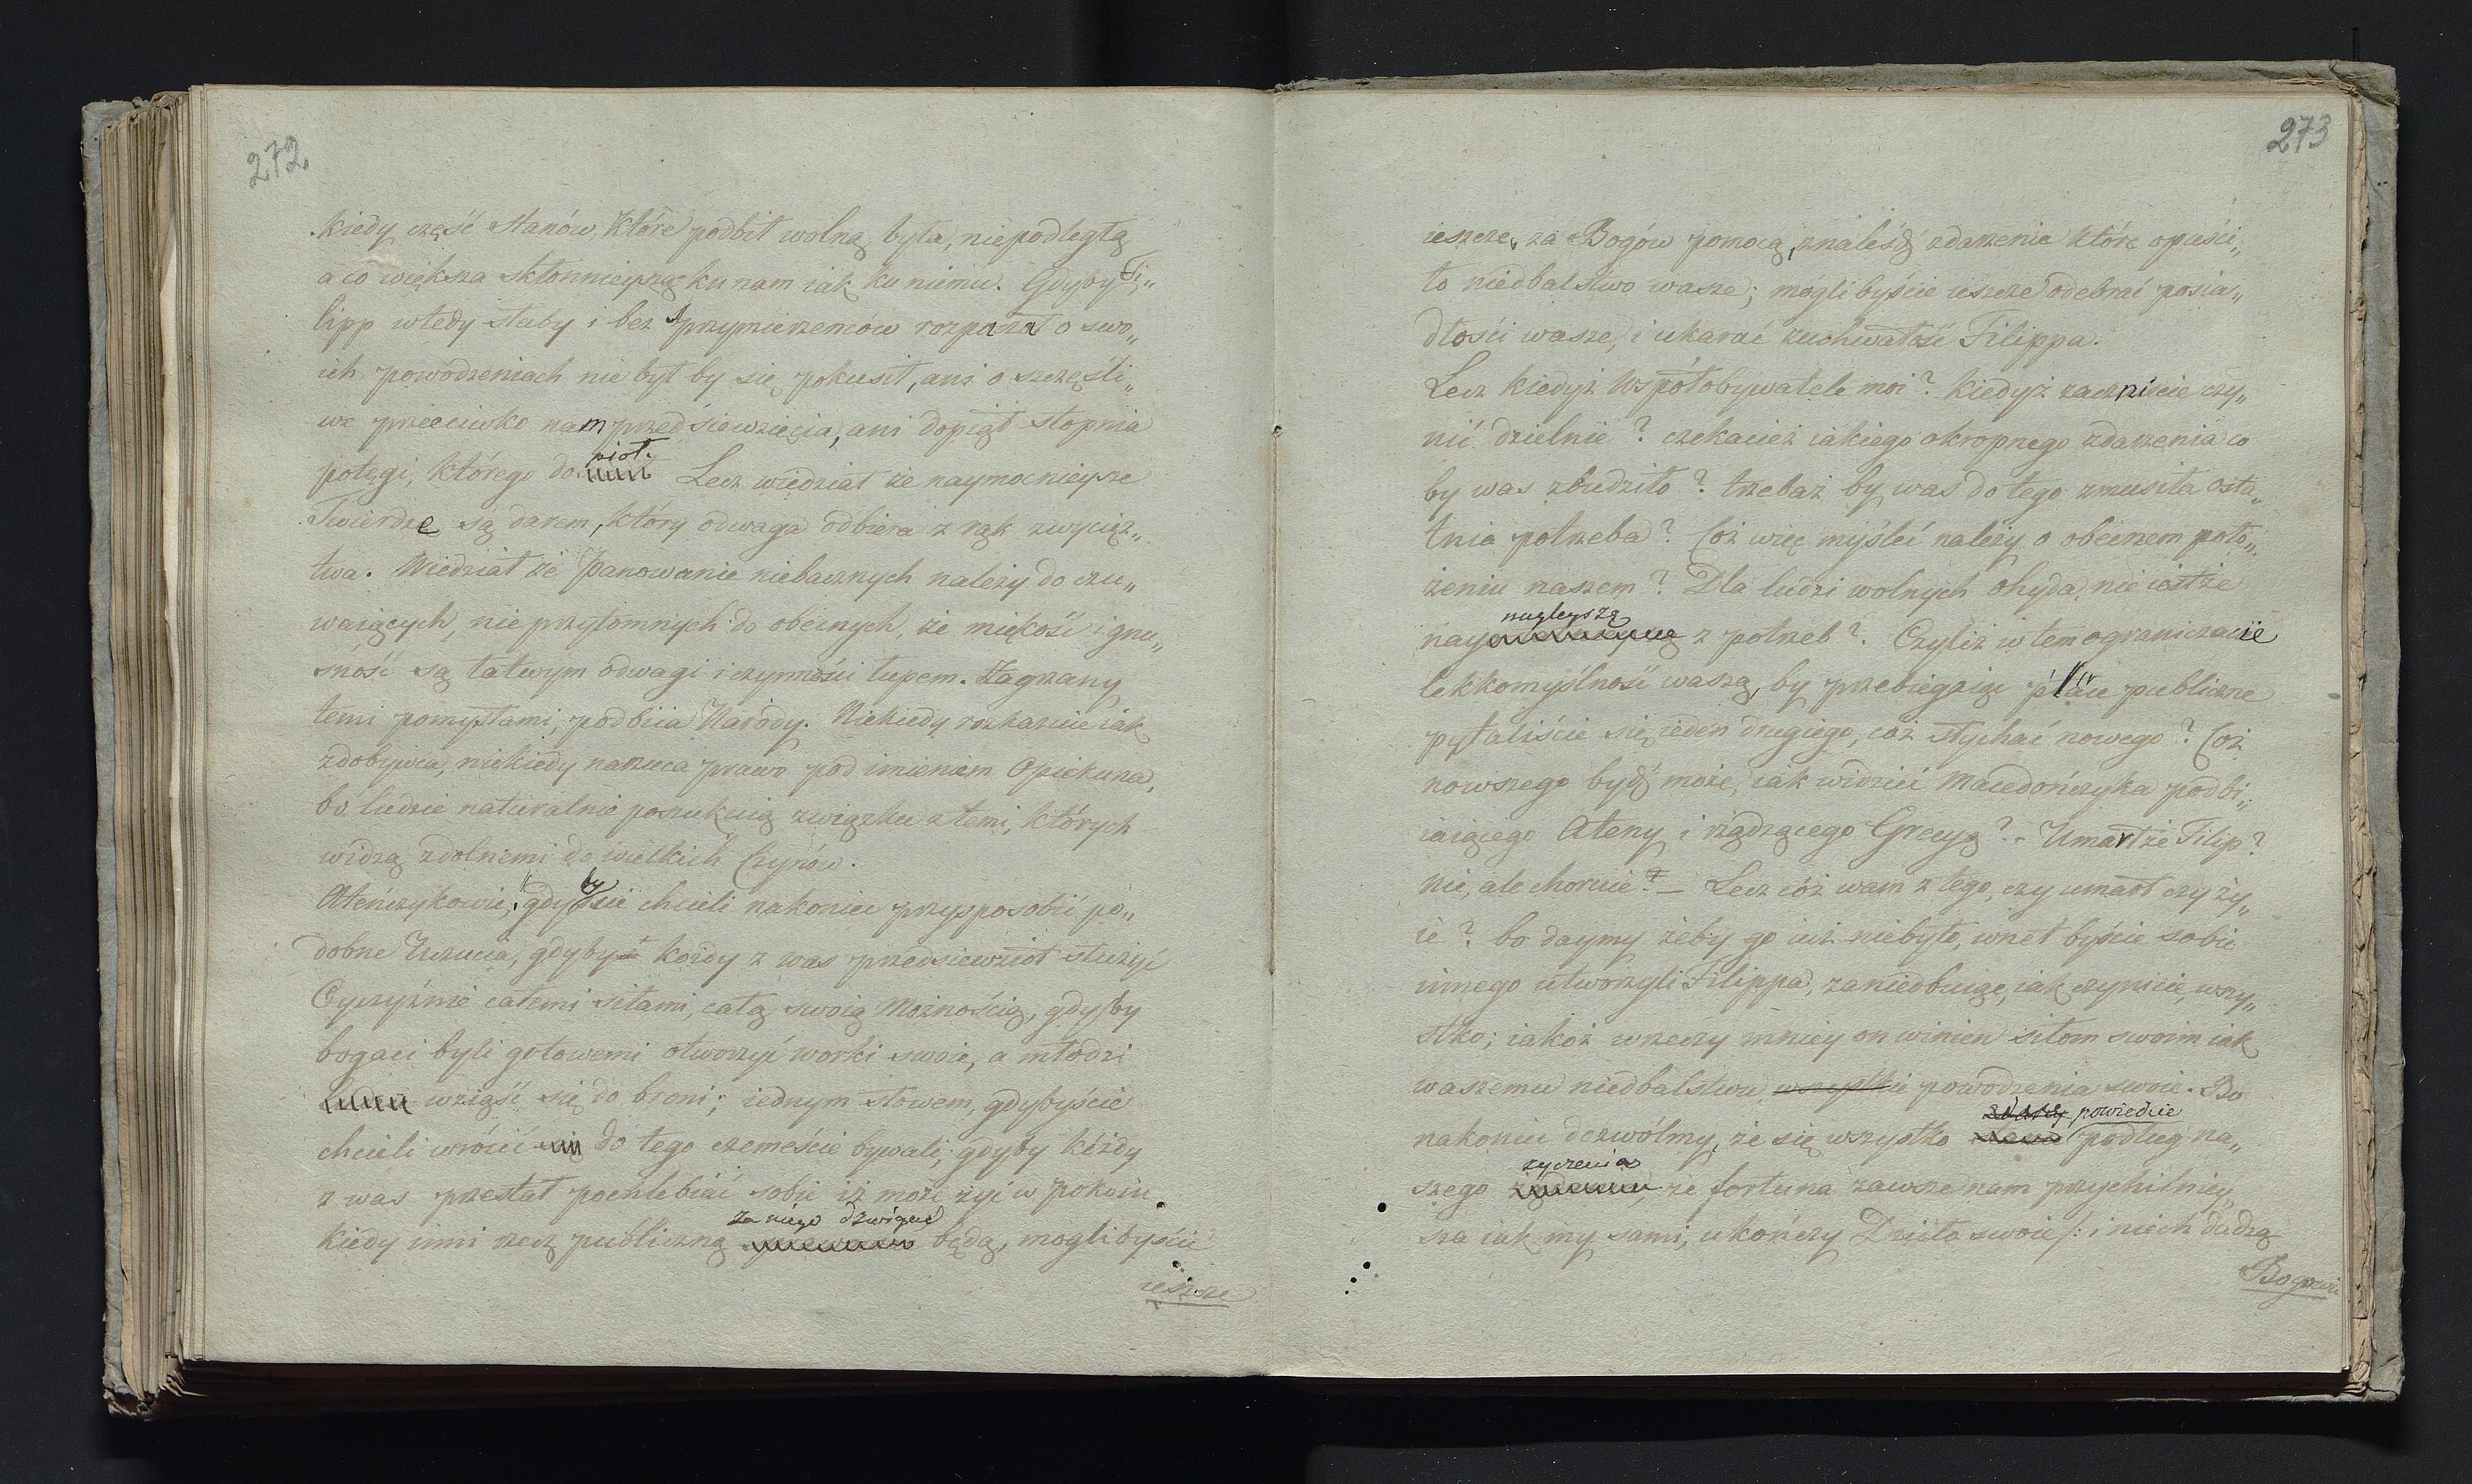 272
kiedy część Stanów, które podbił wolną była, niepodległą
a co większa skłonnieyszą ku nam iak ku niemu. Gdyby Fi„
lipp wtedy słaby i bez sprzymierzeńców rozpaczał o swo„
ich powodzeniach nie był by się pokusił, ani o szczęśli„
we przeciwko nam przedsiewzięcia, ani dopiął stopnia
potęgi, którego dopioł. Lecz wiedział że naymocnieysze
Twierdze są darem, który odwaga odbiera z rąk zwycięz„
twa. Wiedział że panowanie niebacznych należy do czu„
waiących, nieprzytomnych do obecnych, że miękość i gnu„
śność są łatwym odwagi i czynności łupem. Zagrzany
temi pomysłami, podbiia Narody. Niekiedy rozkazuie iak
zdobywca, niekiedy narzuca prawo pod imieniem Opiekuna,
bo ludzie naturalnie poszukuią związku z temi, których
widzą zdolnemi do wielkich Czynów.
Ateńczykowie, gdybyście chcieli nakoniec przysposobić po„
dobne Uczucia, gdyby każdy z was przedsiewzioł służyć
Oyczyźnie całemi siłami, całą swoią Możnością, gdyby
bogaci byli gotowemi otworzyć worki swoie, a młodzi
wziąść się do broni; iednym słowem, gdybyście
chcieli wrócić do tego czemeście bywali; gdyby każdy
z was przestał pochlebiać sobie iż może żyć w pokoiu
kiedy inni rzecz publiczną za niego dzwigać będą, moglibyście
ieszcze
273
ieszcze, za Bogów pomocą, znaleść zdarzenie które opuści„
ło niedbalstwo wasze; moglibyście ieszcze odebrać posia„
dłości wasze, i ukarać zuchwałość Filippa.
Lecz kiedyż Współobywatele moi? kiedyż zaczniecie czy„
nić dzielnie? czekacież iakiego okropnego zdarzenia co
by was zbudziło? trzebaż by was do tego zmusiła osta„
tnia potrzeba? Cóż więc myśleć należy o obecnem poło„
żeniu naszem? Dla ludzi wolnych ohyda, nie iestże
naynagleyszą z potrzeb? Czyliż w tem ograniczacie
lekkomyślność waszą, by przebiegaiąc place publiczne
pytaliście się ieden drugiego, cóż słychać nowego? Cóż
nowszego bydź może, iak widzieć Macedończyka podbi„
iaiącego Ateny i rządzącego Grecyą? - Umarłże Filip?
nie, ale choruie? - Lecz cóż wam z tego, czy umarł czy ży„
ie? bo daymy żeby go iuż niebyło, wnet byście sobie
innego utworzyli Filippa, zaniedbuiąc, iak czynicie, wszy„
stko; iakoż wrzeczy mniey on winien siłom swoim iak
waszemu niedbalstwu wszystkie powodzenia swoie. Bo
nakoniec dozwólmy, że się wszystko powiedzie podług na„
szego życzenia, że fortuna zawsze nam przychilniey„
sza iak my sami, ukończy Dzieło swoie /: i niech dadzą
Bogowie